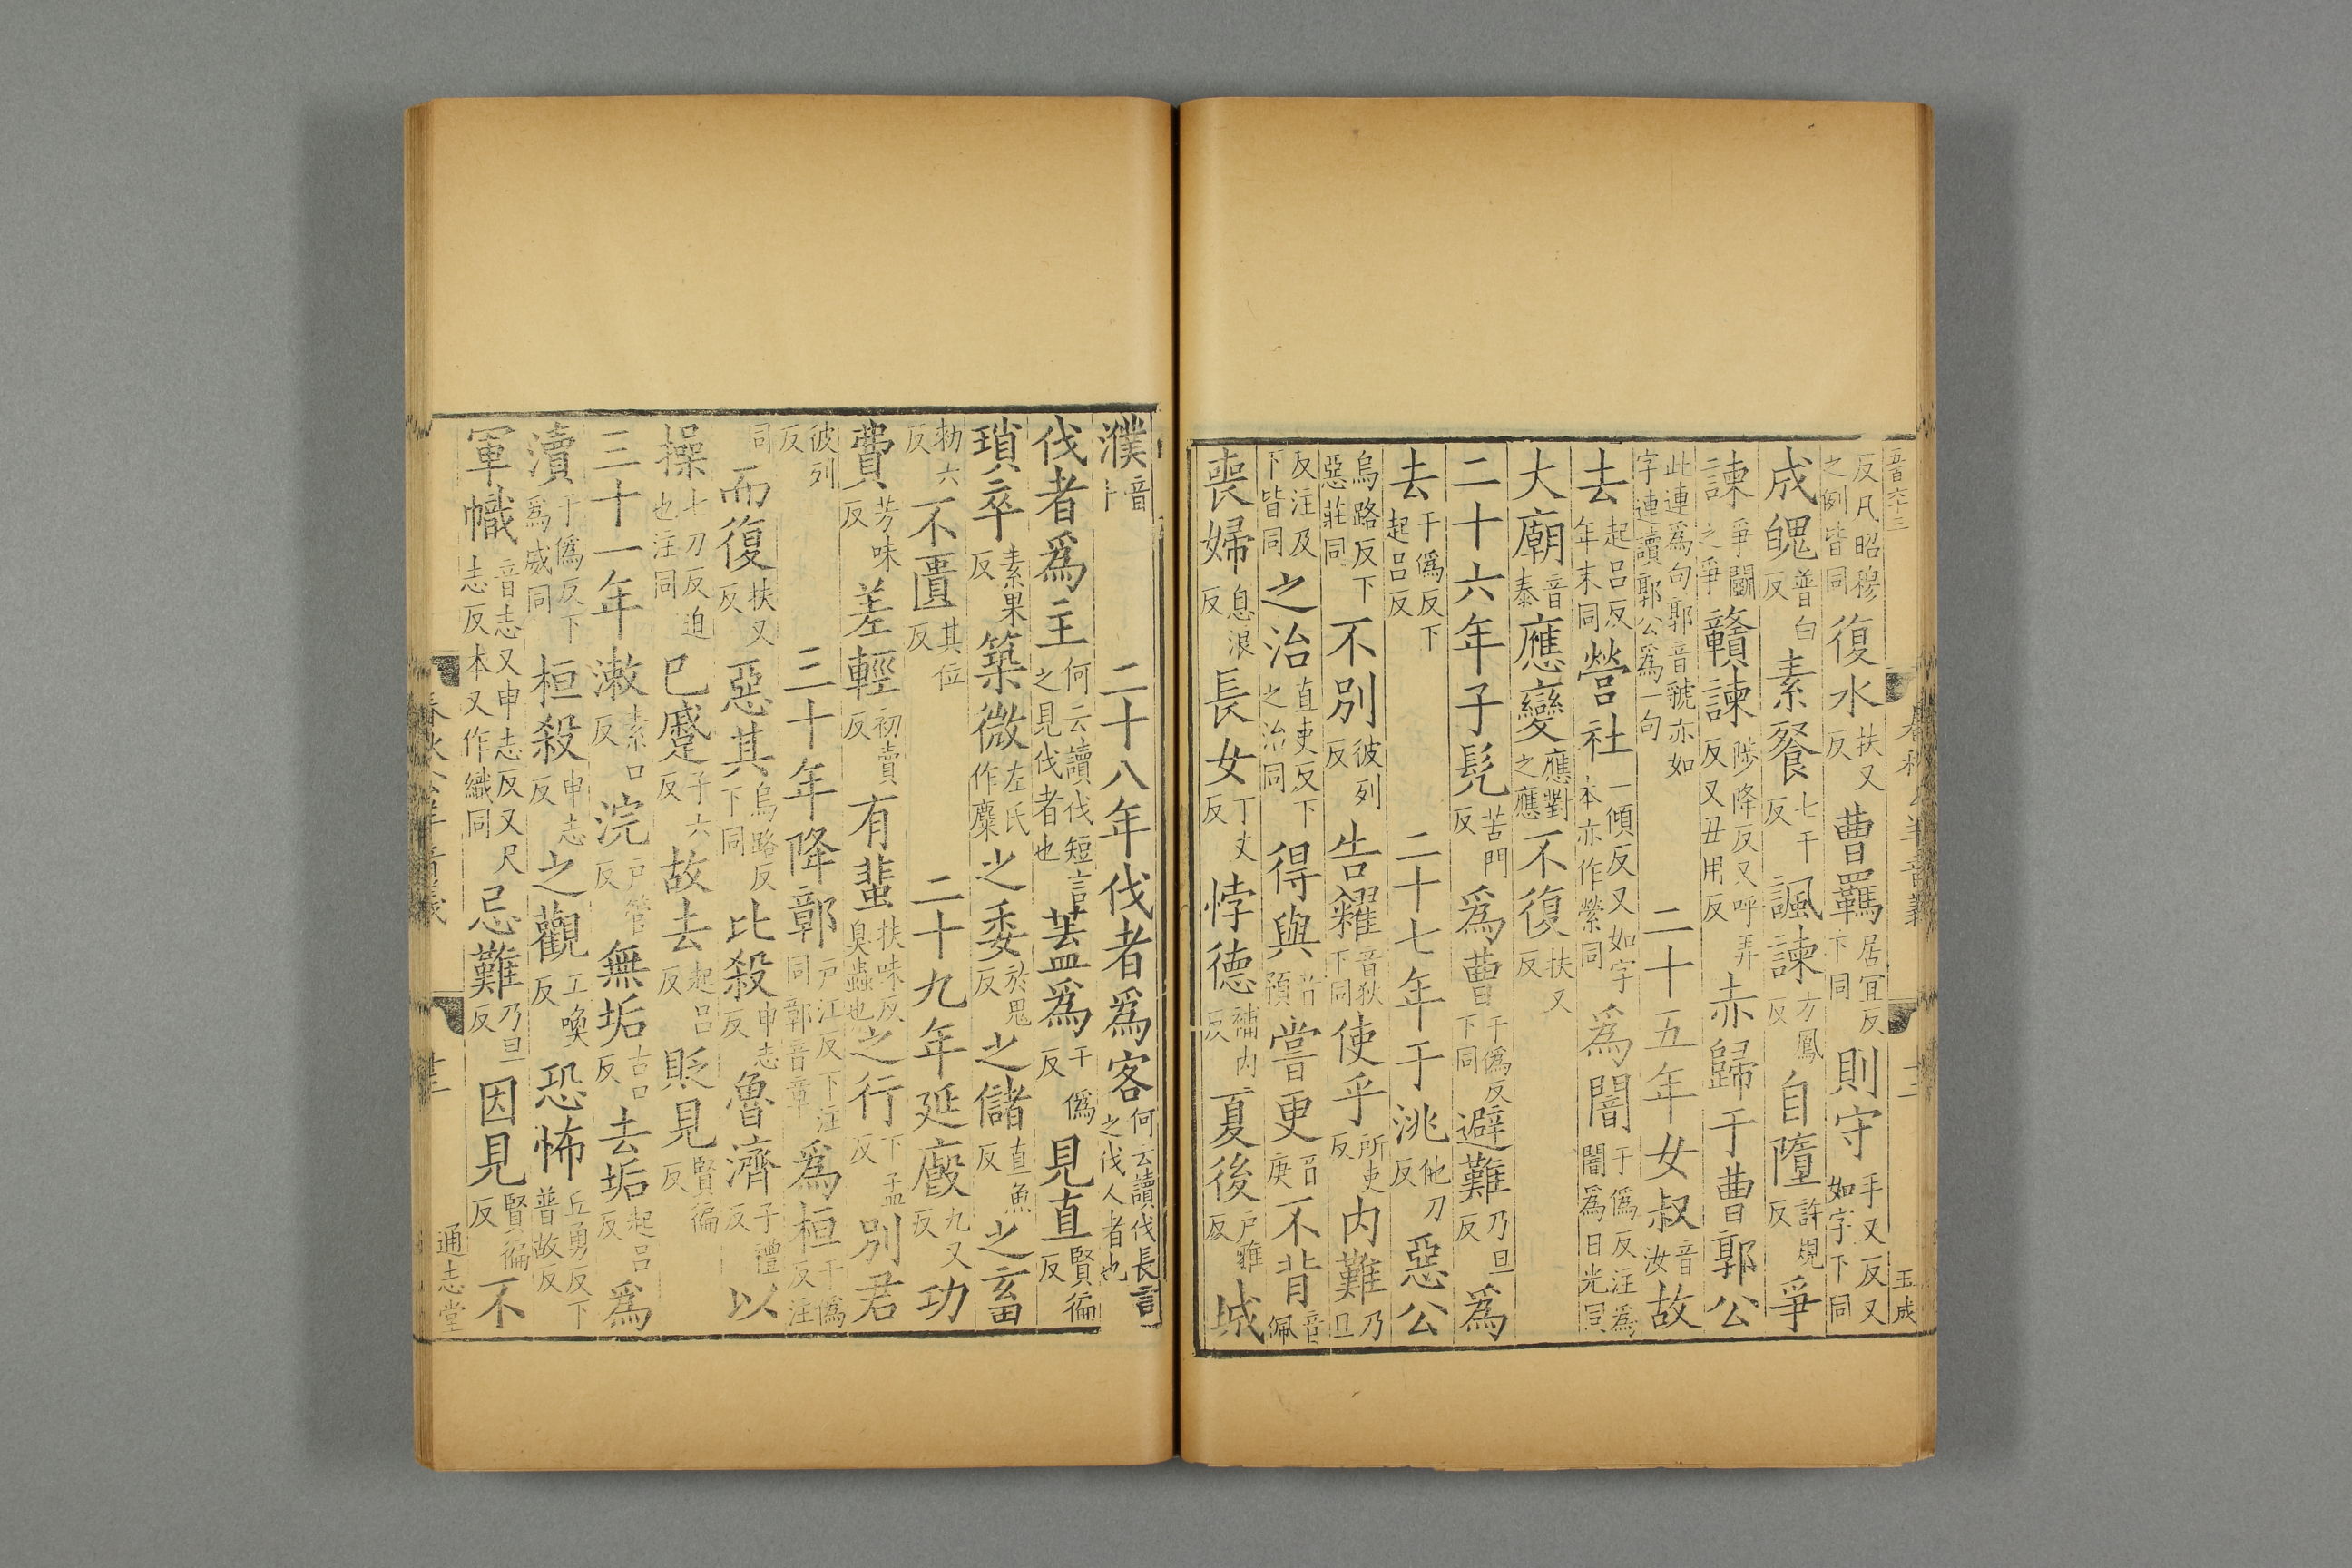 五百六十三
春秋公羊音義 十二 玉成
反凡昭穆之例皆同 復水 扶又反 曹羈 居宜反下同 則守 手又反又如字下同
成 魄 普白反 素餐 七干反 諷諫 方鳳反 自墮 許規反 爭
諫 爭鬭之爭 贛諫 陟降反又呼弄反又丑用反 赤歸于曹郭公
此連爲句郭音虢亦如字連讀郭公爲一句 二十五年 女叔 音汝 故
去 起呂反年末同 營社 一傾反又如字本亦作縈同 爲闇 于僞反注爲闇爲日光同
大廟 音泰 應變 應對之應 不復 扶又反
二十六年 子髡 苦門反 爲曹 于僞反下同 避難 乃旦反 爲
去 于僞反下起呂反 二十七年 于洮 他刀反 惡公
烏路反下惡莊同 不別 彼列反 告糴 音狄下同 使乎 所吏反 內難 乃旦
反注及下皆同 之治 直吏反下之治同 得與 音預 嘗更 音庚 不背 音佩
喪婦 息浪反 長女 丁丈反 悖德 補內反 夏後 戶雅反 城
濮 音卜 二十八年 伐者爲客 何云讀伐長言之伐人者也
伐者爲主 何云讀伐短言之見伐者也 蓋爲 于僞反 見直 賢徧反
瑣卒 素果反 築微 左氏作麋 之委 於鬼反 之儲 直魚反 之畜
勑六反 不匱 其位反 二十九年 延廏 九又反 功
費 芳味反 差輕 初賣反 有蜚 扶味反臭蟲也 之行 下孟反 別君
彼列反 三十年 降鄣 戶江反下注同鄣音章 爲桓 于僞反注
同 而復 扶又反 惡其 烏路反下同 比殺 申志反 魯濟 子禮反 以
操 七刀反迫也注同 巳蹙 子六反 故去 起呂反 貶見 賢徧反
三十一年 漱 素口反 浣 戶管反 無垢 古口反 去垢 起呂反 爲
瀆 于僞反下爲威同 桓殺 申志反 之觀 工喚反 恐怖 丘勇反下普故反
軍幟 音志又申志反又尺志反本又作織同 忌難 乃旦反 因見 賢徧反 不
春秋公羊音義 通志堂